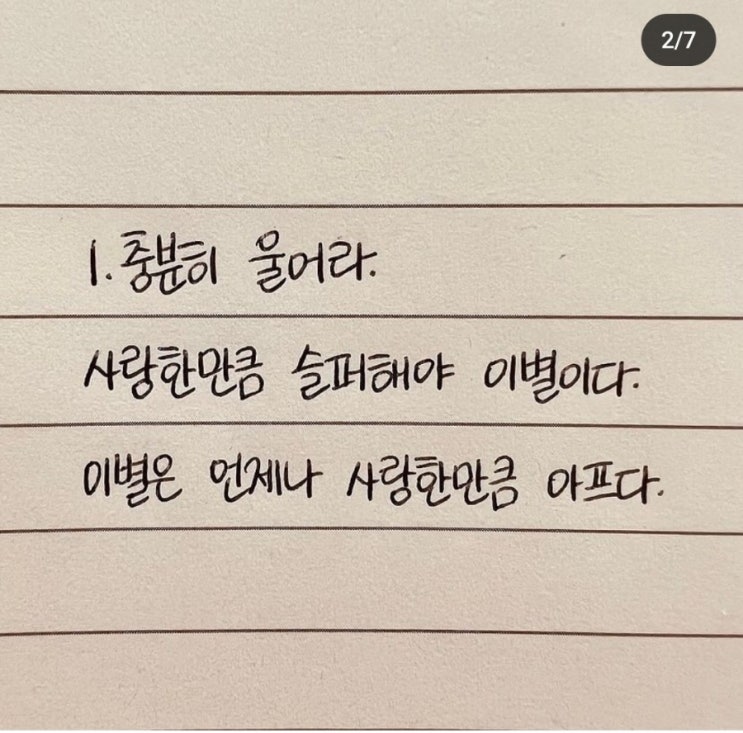 2/7
1. 충분히 울어라.
사랑한만큼 슬퍼해야 이별이다.
이별은 언제나 사랑한만큼 아프다.